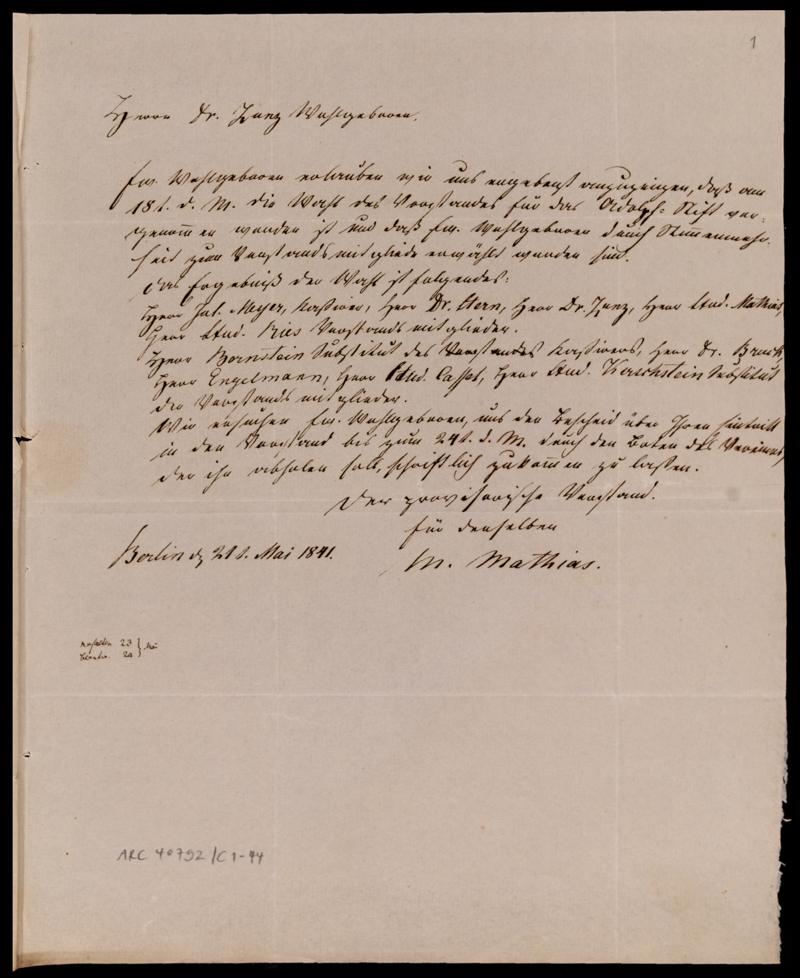 1
Herrn Dr. Zunz Wohlgeboren.
Ew. Wohlgeboren erlauben wir uns ergebenst anzuzeigen, daß am
18t. d. M. die Wahl des Vorstandes für das Adolph-Stift vor-
genommen worden ist und daß Ew. Wohlgeboren durch Stimmenmehr-
heit zum Vorstandsmitgliede erwählt worden sind.
Das Ergebniß der Wahl ist folgendes:
Herr Meyer, Kassirer, Herr Dr. Stern, Herr Dr. Zunz, Herr Stud. Mathias,
Herr Stud. Ries Vorstandsmitglieder.
Herr Bornstein Substitut des Vorstandes Kassirers, Herr Dr.
Herr Engelmann, Herr Stud. Cassel, Herr Stud. Kerschstein Substitut
der Vorstandsmitglieder.
Wir ersuchen Ew. Wohlgeboren, uns den Bescheid über Ihren Eintritt
in den Vorstand bis zum 24t. d. M. durch den Boten des Vereines,
der ihn abholen soll, schriftlich zukommen zu lassen.
Der provisorische Vorstand.
für denselben
Berlin d. 21t. Mai 1841.
M. Mathias.
erhalten 23 } Mai
24
ARC 4o792/C1-44